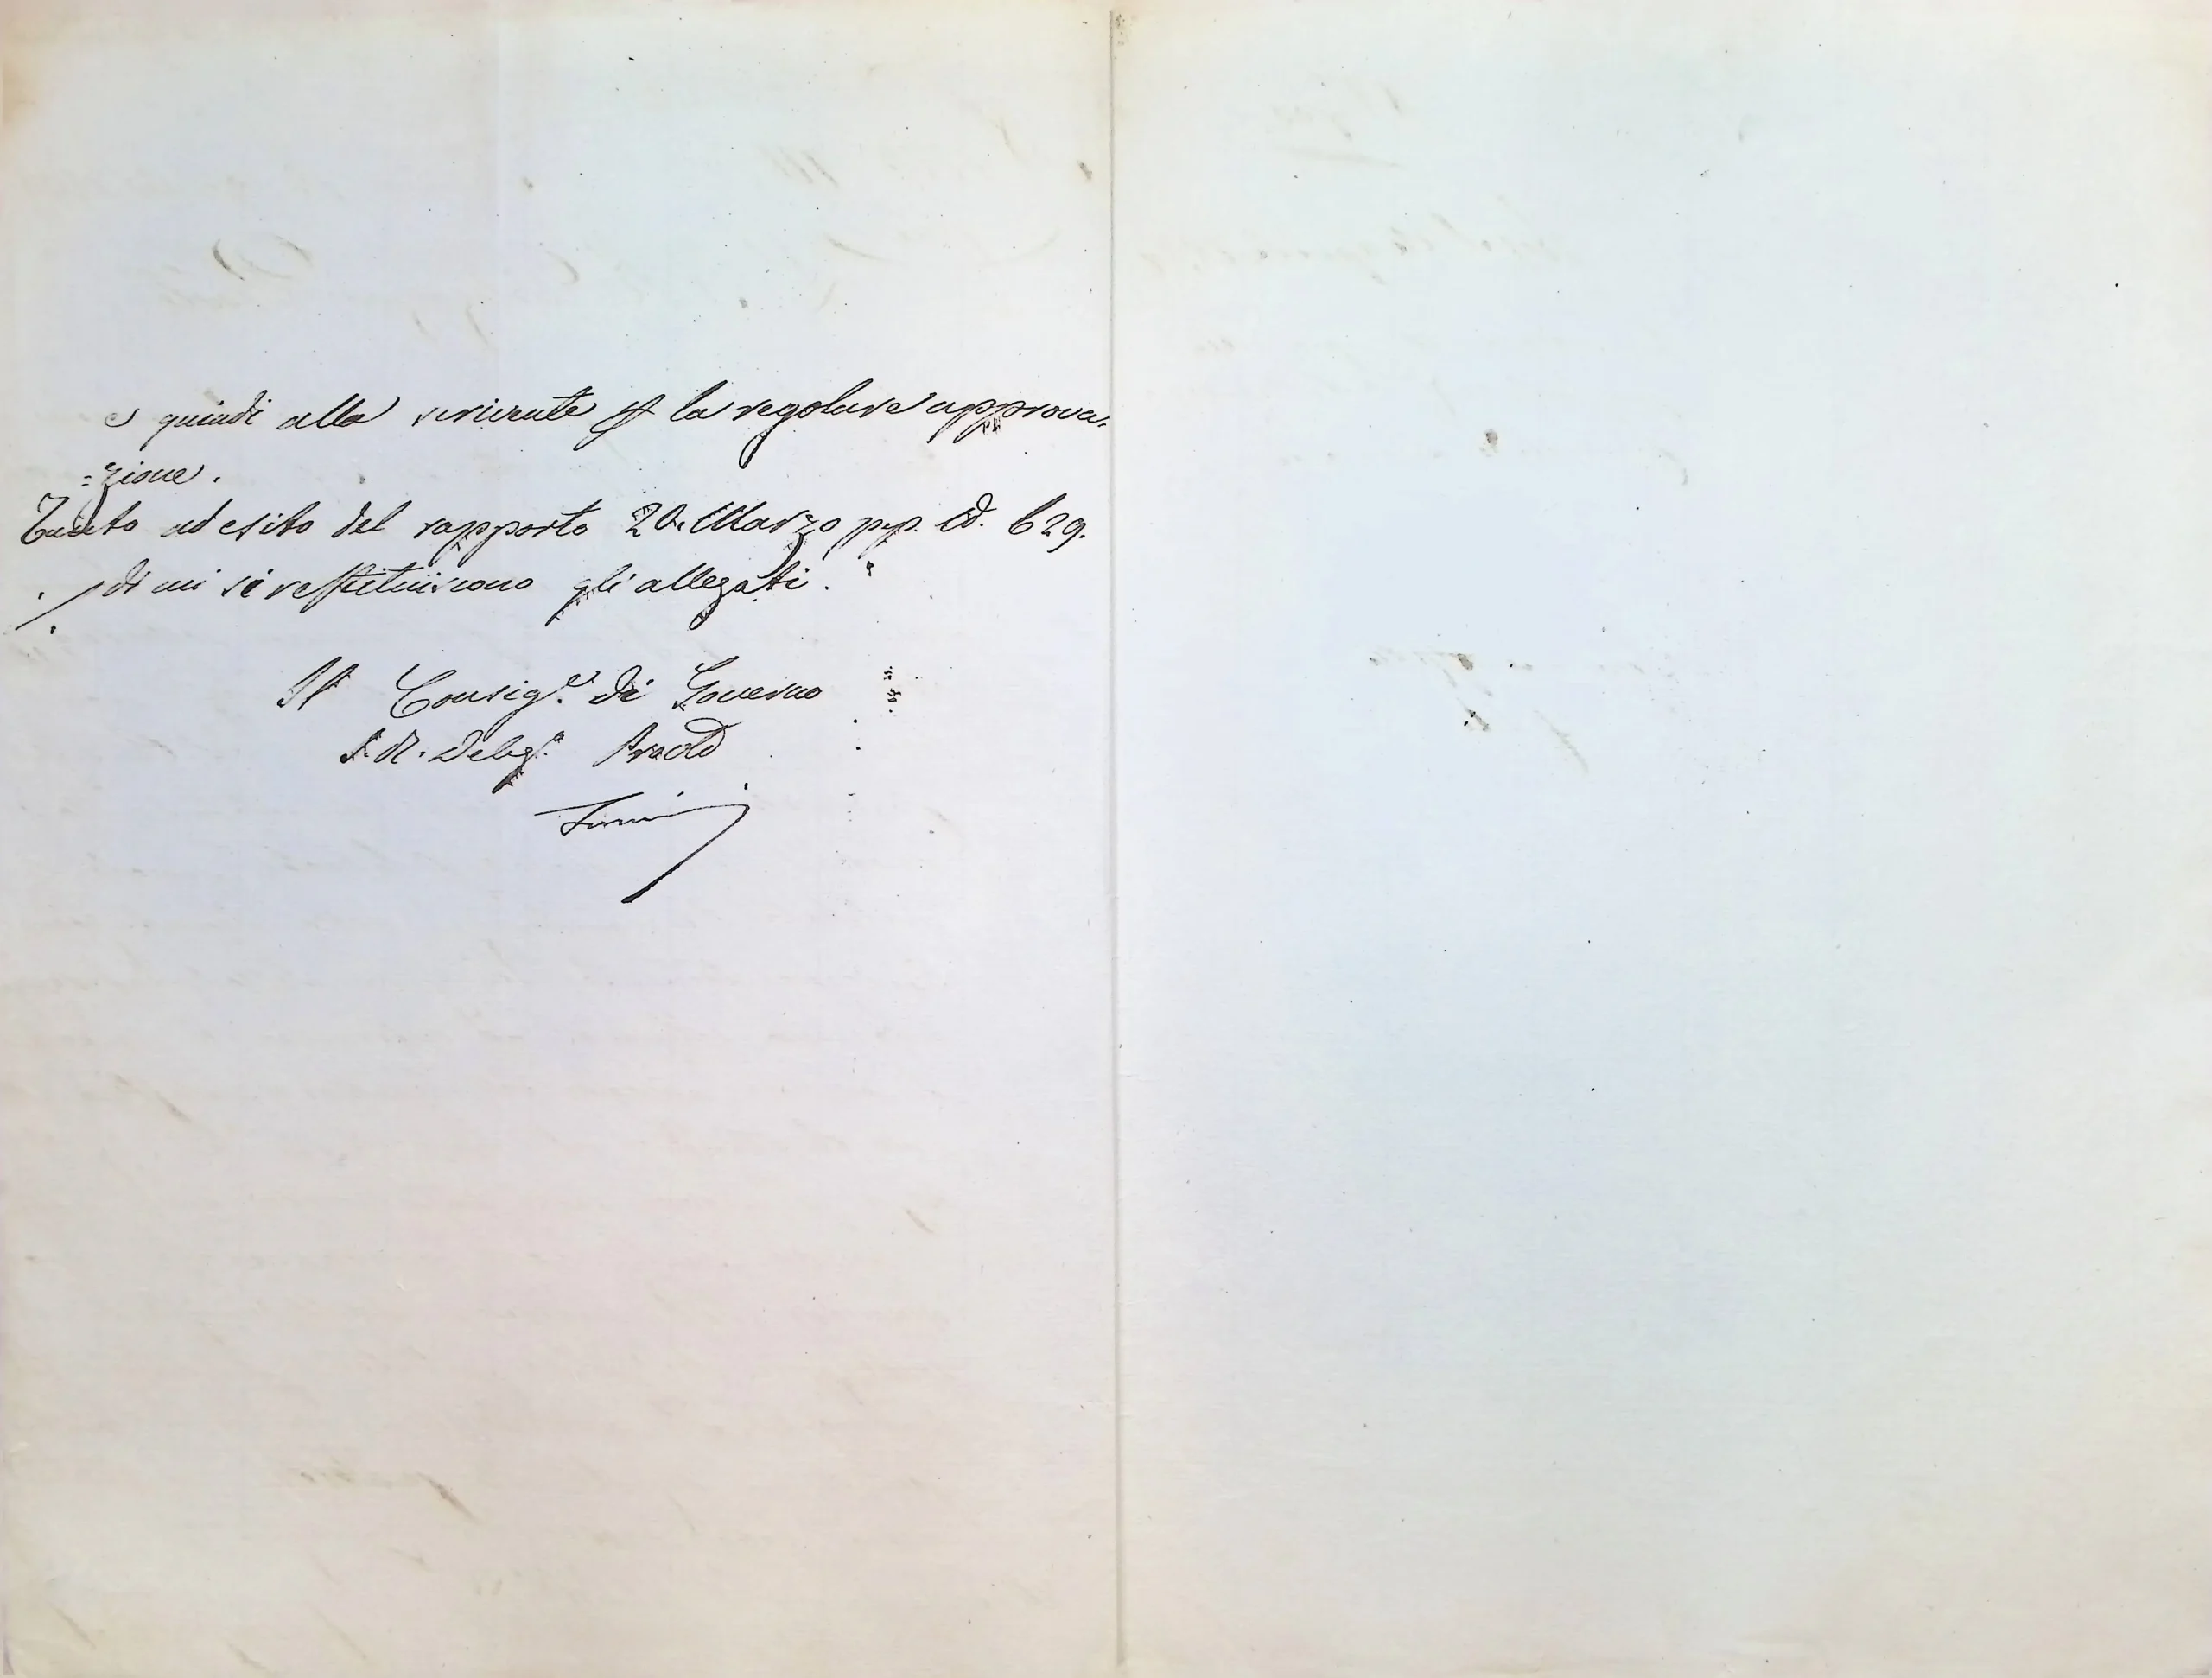 e quindi alla scrivente p la regolare approva=
=zione.
Tanto ad esito del rapporto 20. Marzo p.p. Nd. 629.
./. di cui si restituiscono gli allegati.
Il Consig.e di Governo
I. R. Deleg.o